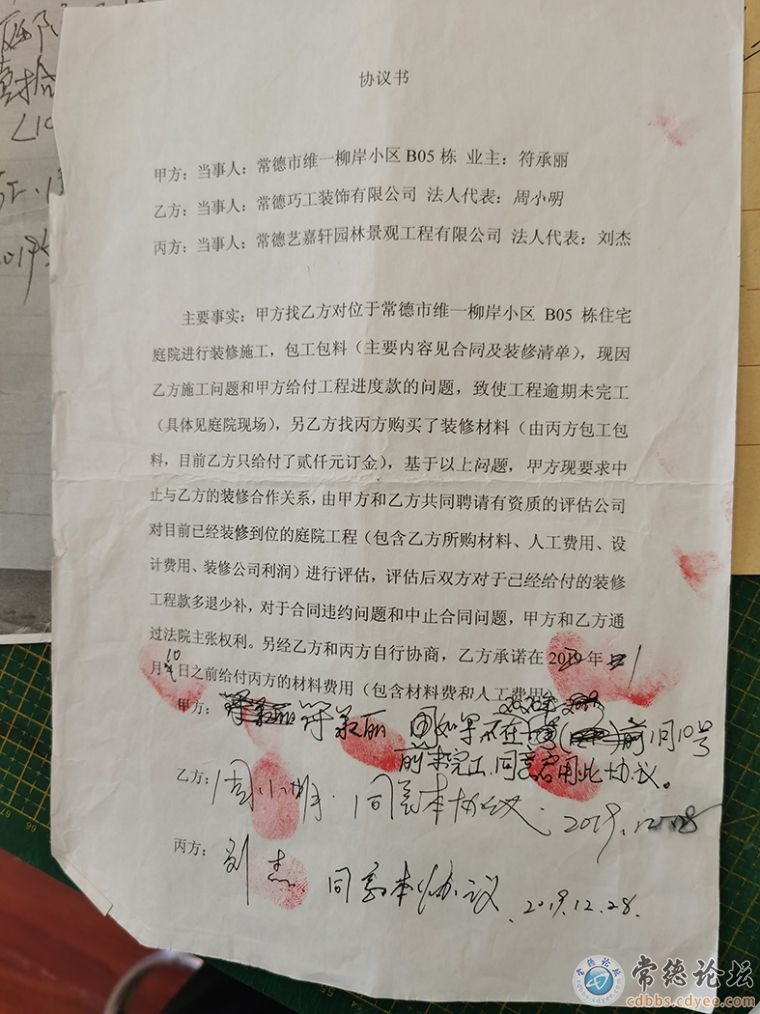 协议书
甲方：当事人：常德市维一柳岸小区 B05 栋 业主：符承丽
乙方：当事人：常德巧工装饰有限公司 法人代表：周小明
丙方：当事人：常德艺嘉轩园林景观工程有限公司 法人代表：刘杰
主要事实：甲方找乙方对位于常德市维一柳岸小区 B05 栋住宅
庭院进行装修施工，包工包料（主要内容见合同及装修清单），现因
乙方施工问题和甲方给付工程进度款的问题，致使工程逾期未完工
（具体见庭院现场），另乙方找丙方购买了装修材料（由丙方包工包
料，目前乙方只给付了贰仟元订金），基于以上问题，甲方现要求中
止与乙方的装修合作关系，由甲方和乙方共同聘请有资质的评估公司
对目前已经装修到位的庭院工程（包含乙方所购材料、人工费用、设
计费用、装修公司利润）进行评估，评估后双方对于已经给付的装修
工程款多退少补，对于合同违约问题和中止合同问题，甲方和乙方通
过法院主张权利。另经乙方和丙方自行协商，乙方承诺在 20 年 1
月 10 日之前给付丙方的材料费用（包含材料费和人工费用
甲方：符承丽 如果不在 前1月10号
前未完工,同意启用此协议。
乙方：周小明 同意本协议. 2019.12.28
丙方：刘杰 同意本协议 .2019.12.28.
常德论坛
cdbbs.cdyee.com